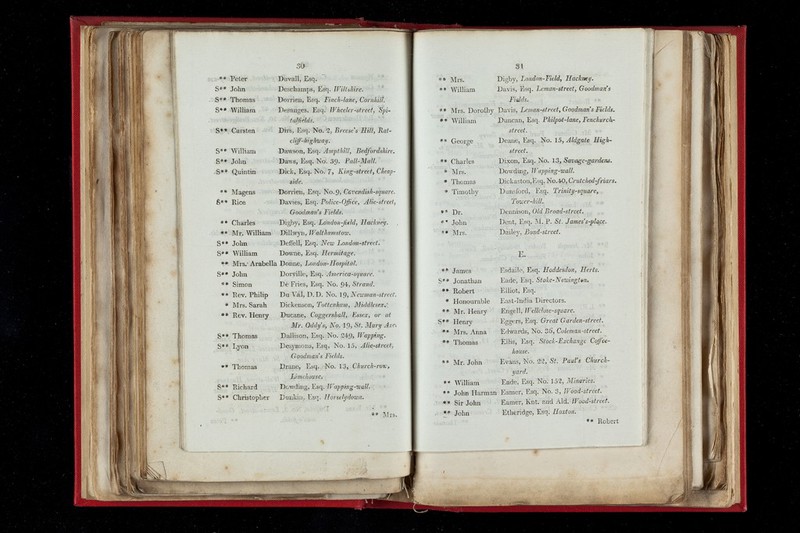 30
** Peter Duvall, Esq.
S** John Deschamps, Esq. Wiltshire.
S** Thomas Dorrien, Esq. Finch-lane, Cornhill.
S** William Desmages, Esq. Wheeler-street, Spi-
talfields.
S** Carsten Dirs, Esq. No. 2, Breese's Hill, Rat-
cliff-highway.
S** William Dawson, Esq. Ampthill, Bedfordshire.
S** John Dawes, Esq. No. 39, Pall-Mall.
S** Quintin Dick, Esq. No. 7, King-street, Cheap-
side.
** Magens Dorrien, Esq. No. 9, Cavendish-square.
S** Rice Davies, Esq. Police-Office, Alie-street,
Goodman's Fields.
** Charles Digby, Esq. London-field, Hackney.
** Mr. William Dillwyn, Walthamstow.
S** John Deffell, Esq. New London-street.
S** William Downe, Esq. Hermitage.
** Mrs. Arabella Donne, London-Hospital.
S** John Dorville, Esq. America-square.
** Simon De Fries, Esq. No. 94, Strand.
** Rev. Philip Du Val, D.D. No. 19, Newman-street.
* Mrs. Sarah Dickenson, Tottenham, Middlesex.
** Rev. Henry Ducane, Coggershall, Essex, or at
Mr. Oddy's, No. 19, St. Mary Axe.
S** Thomas Dallman, Esq. No. 249, Wapping.
S** Lyon Desymons, Esq. No. 15, Alie-street,
Goodman's Fields.
** Thomas Drane, Esq. No. 13, Church-row,
Limehouse.
S** Richard Dowding, Esq. Wapping-wall.
S** Christopher Dunkin, Esq. Horselydown.
** Mrs.
31
** Mrs. Digby, London-Field, Hackney.
** William Davis, Esq. Leman-street, Goodman's
Fields.
** Mrs. Dorothy Davis, Leman-street, Goodman's Fields.
** William Duncan, Esq. Philpot-lane, Fenchurch-
street.
** George Deane, Esq. No. 15, Aldgate High-
street.
** Charles Dixon, Esq. No. 13, Savage-gardens.
* Mrs. Dowding, Wapping-wall.
* Thomas Dickason, Esq. No. 40, Crutched-friars.
* Timothy Duneford, Esq. Trinity-square,
Tower-hill.
** Dr. Dennison, Old Broad-street.
** John Dent, Esq. M. P. St. James's-place.
** Mrs. Dusley, Bond-street.
E.
** James Esdaile, Esq. Hoddesdon, Herts.
S** Jonathan Eade, Esq. Stoke-Newington.
** Robert Elliot, Esq.
* Honourable East-India Directors.
** Mr. Henry Engell, Wellclose-square.
S** Henry Eggers, Esq. Great Garden-street.
** Mrs. Anna Edwards, No. 35, Coleman-street.
** Thomas Ellis, Esq. Stock-Exchange Coffee-
house.
** Mr. John Evans, No. 22, St. Paul's Church-
yard.
** William Eade, Esq. No. 152, Minories.
** John Harman Eamer, Esq. No. 3, Wood-street.
** Sir John Eamer, Knt. and Ald. Wood-street.
** John Etheridge, Esq. Hoxton.
** Robert